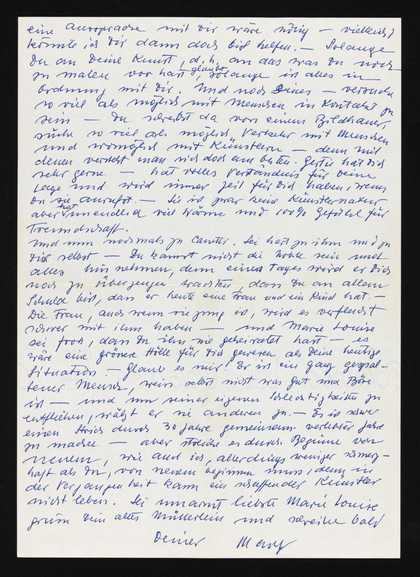 eine Aussprache mit dir wäre nötig – vielleicht
könnte ich dir dann doch bissl helfen. – Solange
du an deine Kunst, d. h. an das was du noch
zu malen vor hast, glaubst, solange ist alles in
Ordnung mit dir. Und noch Eines – versuche
so viel als möglich mit Menschen in Kontakt zu
sein – Du schreibst da von einem Bildhauer,
suche so viel als möglich Verkehr mit Menschen
und womöglich mit Künstlern – denn mit
denen versteht man sich doch am besten. Gerta hat dich
sehr gerne – hat volles Verständnis für deine
Lage und wird immer Zeit für dich haben, wenn
du sie anrufst. – Sie ist zwar keine Künstlernatur
aber hat unendlich viel Wärme und 100% Gefühl für
Freundschaft.
Und nun nochmals zu Canetti. Sei hart zu ihm und zu
dir selbst – Du kannst nicht die sein und
alles hin nehmen, denn eines Tages wird er dich
noch zu überzeugen trachten, dass du an allem
Schuld bist, dass er heute eine Frau und ein Kind hat –
Die Frau, auch wenn sie jung ist, wird es verflucht
schwer mit ihm haben – und Marie Louise
sei froh, dass du ihn nie geheiratet hast – es
wäre eine größere Hölle für dich gewesen als deine heutige
Situation. – Glaube es mir. Er ist ein ganz gespal-
tener Mensch, weiss selbst nicht was Gut und Böse
ist – und um seiner eigenen Schlechtigkeiten zu
entfliehen, wälzt er sie anderen zu – Es ist schwer
einen Strich durch 30 Jahre gemeinsam verlebter Jahre
zu machen – aber streiche es durch. Beginne von
neuem, wie auch ich, allerdings weniger schmerz-
haft als du, von neuem beginnen muss, denn in
der Vergangenheit kann ein schaffender Künstler
nicht leben. Sei umarmt liebste Marie Louise
grüss dein altes Mütterlein und schreibe bald
Deiner